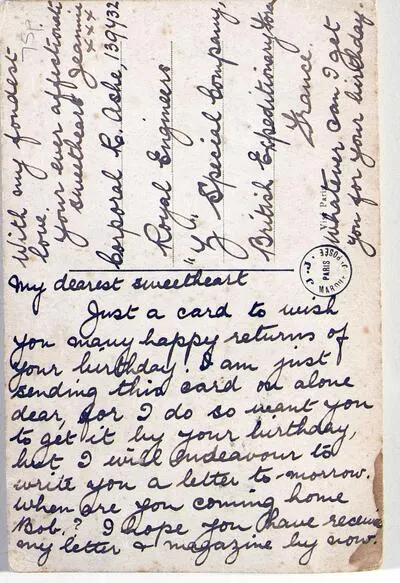 My dearest sweetheart
Just a card to wish
you many happy returns of
your birthday. I am just
sending this card on alone
dear, for I do so want you
to get it by your birthday,
but I will endeavour to
write you a letter to-morrow.
When are you coming home
Bob.? I hope you have receive
my letter & magazine by now.
With my fondest
love.
Your ever affectionate
sweetheart Jeannie
xxx
Corporal R. Ashe, 139432
Royal Engineers
"Y" Special Company,
British Expeditionary
France.
Whatever can I get
you for your birthday.
Visé Paris
PARIS
75P